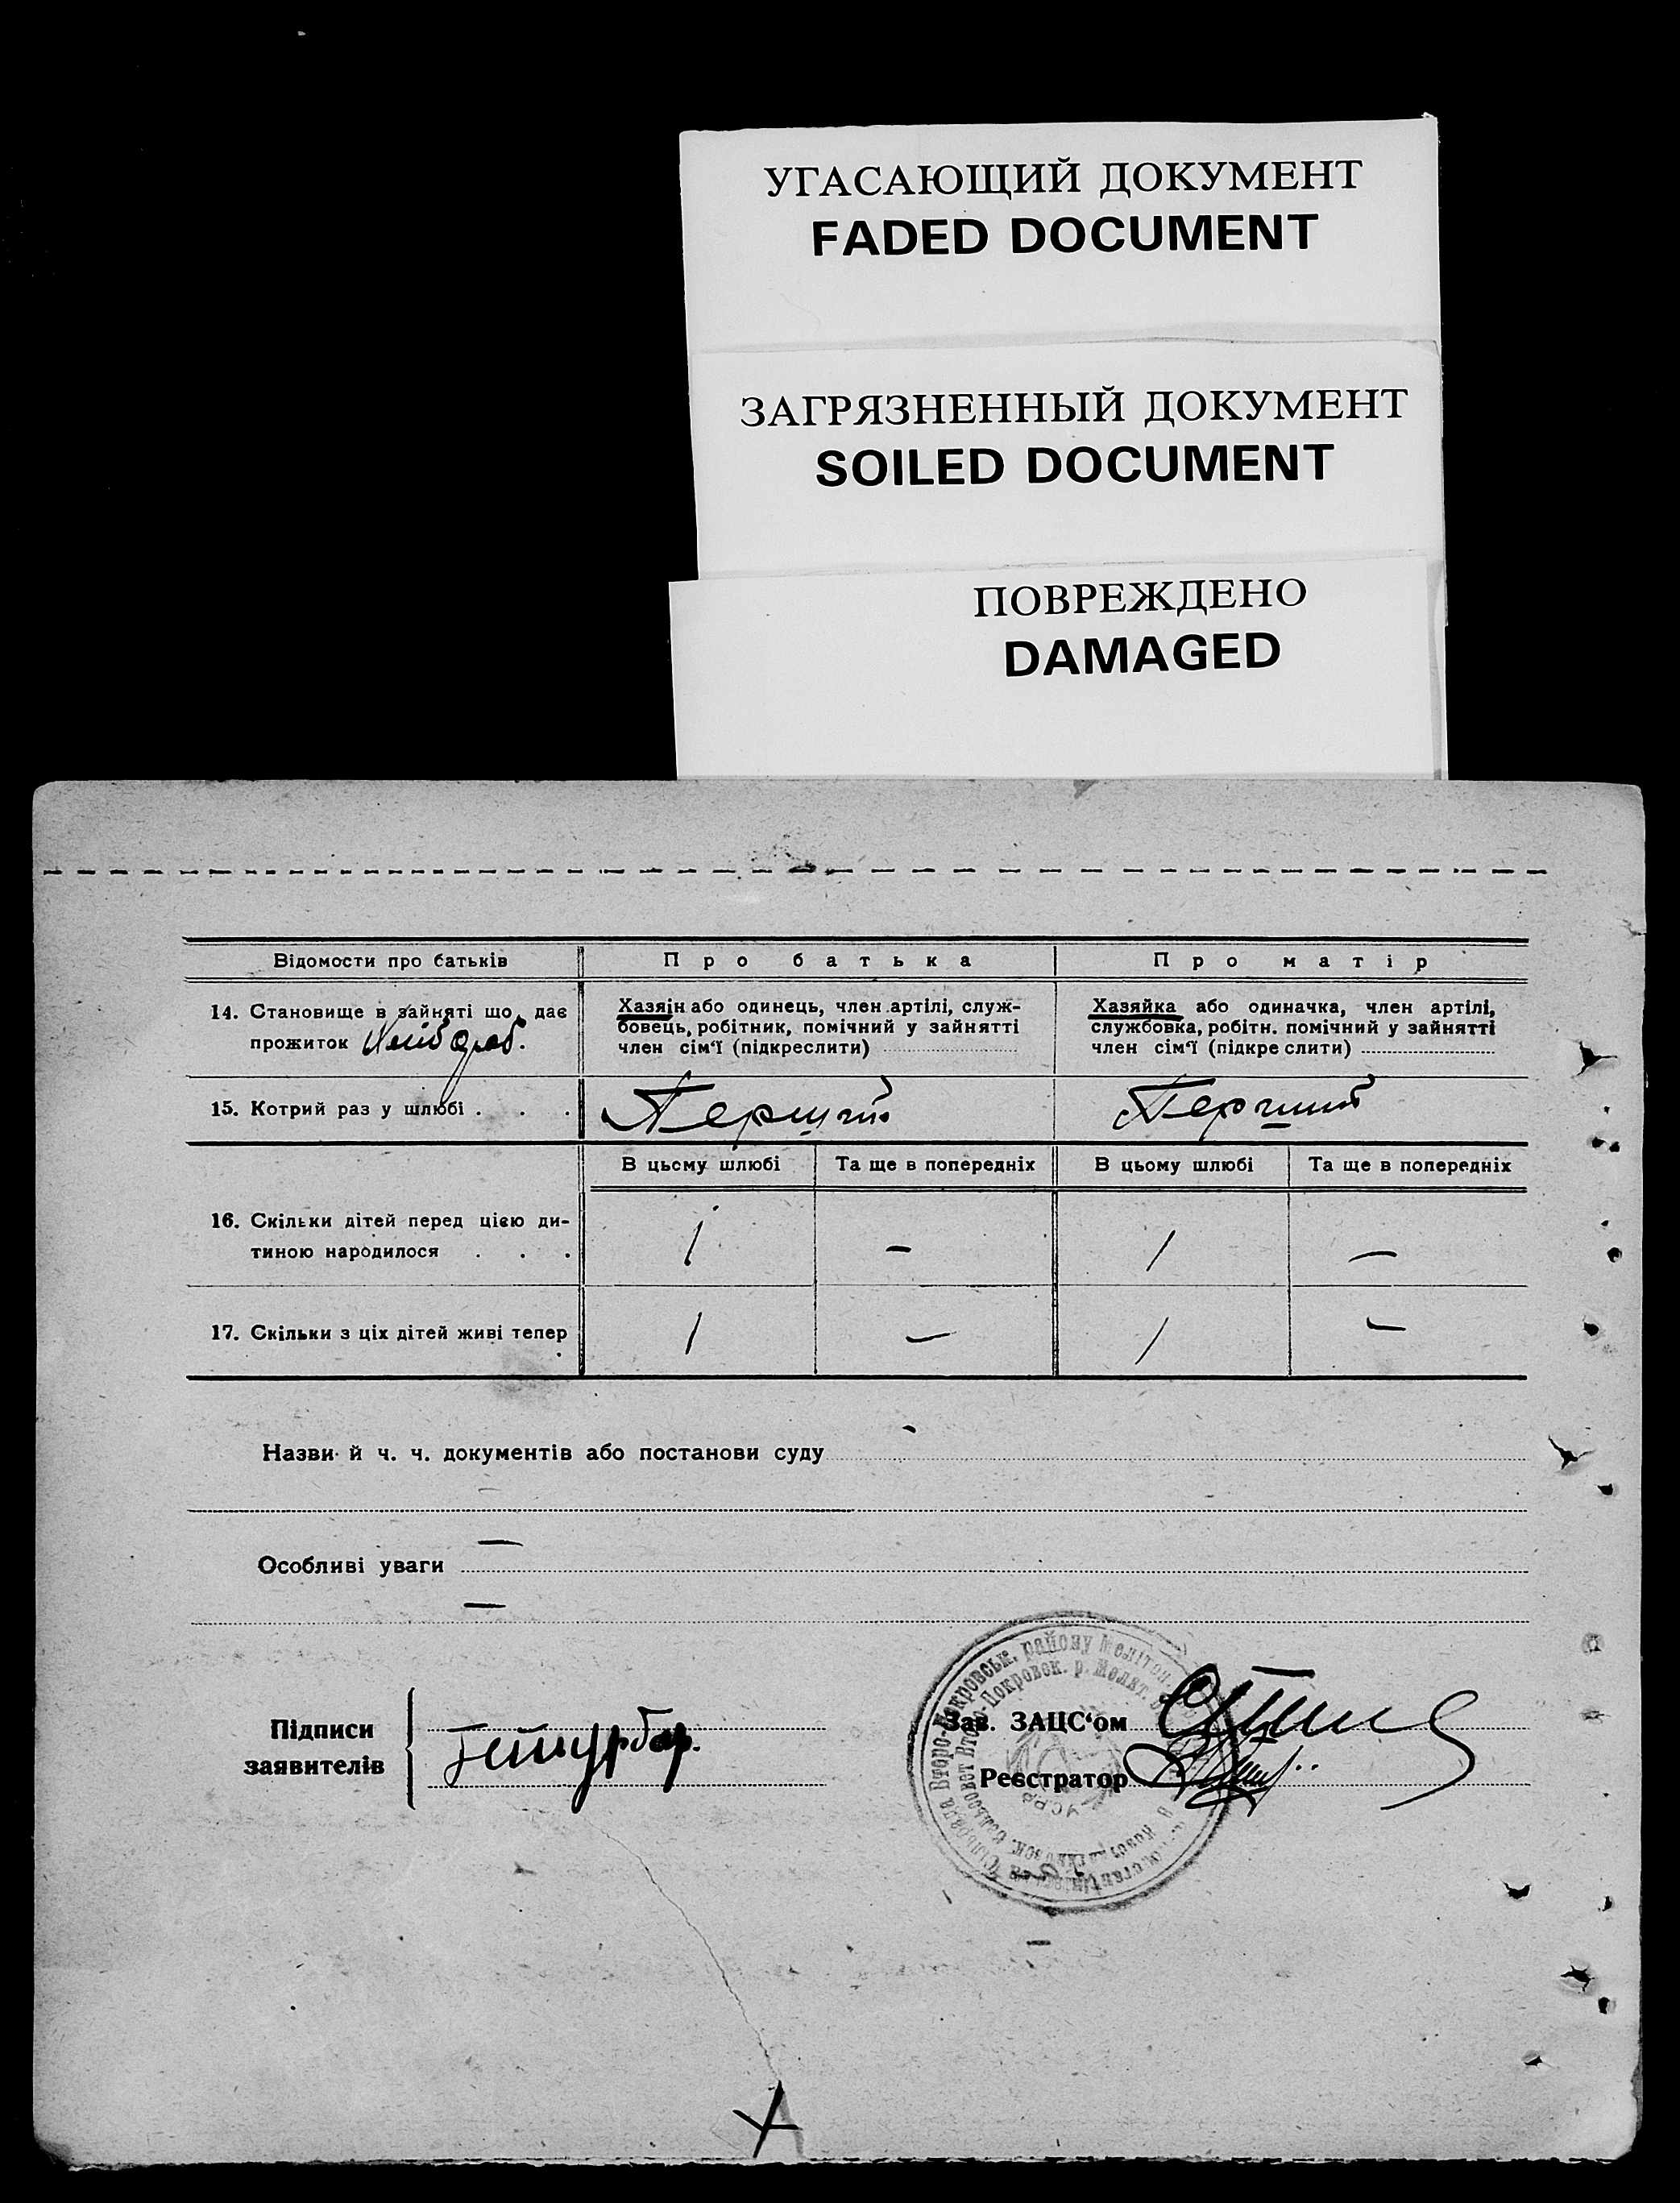 УГАСАЮЩИЙ ДОКУМЕНТ
FADED DOCUMENT
ЗАГРЯЗНЕННЫЙ ДОКУМЕНТ
SOILED DOCUMENT
ПОВРЕЖДЕНО
DAMAGED
Відомости про батьків
Про батька
Про матір
14. Становище в зайняті що дає
прожиток Хлібороб.
Хазяїн або одинець, член артілі, служ-
бовець, робітник, помічний у зайнятті
член сім'ї (підкреслити)
Хазяйка або одиначка, член артілі,
службовка, робітн. помічний у зайнятті
член сім'ї (підкре слити)
15. Котрий раз у шлюбі . . .
Перший
Перший
В цьому шлюбі
Та ще в попередніх
В цьому шлюбі
Та ще в попередніх
16. Скільки дітей перед цією ди-
тиною народилося . . .
1 — 1 —
17. Скільки з ціх дітей живі тепер
1 — 1 —
Назви й ч. ч. документів або постанови суду
Особливі уваги —
—
Підписи
заявителів
Зав. ЗАЦС'ом
Реєстратор
Второ-Покровськ. району
Покровск. р. Мелит.
УСРР